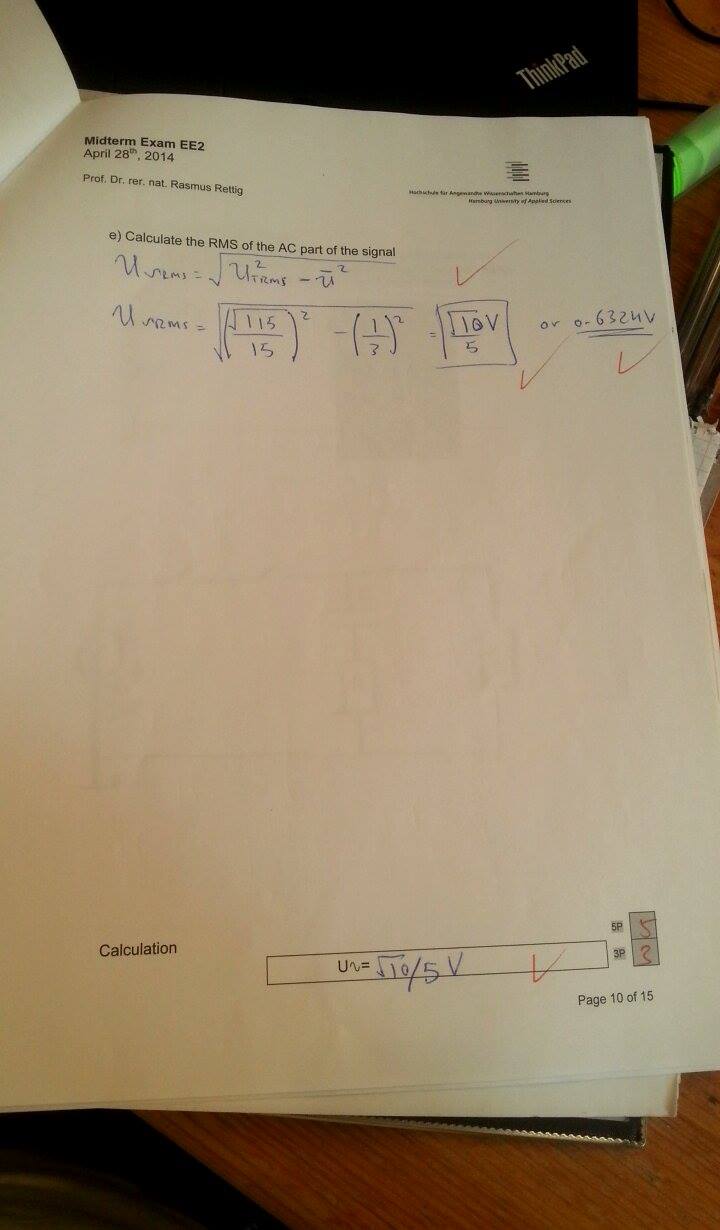 ThinkPad
Midterm Exam EE2
April 28th, 2014
Prof. Dr. rer. nat. Rasmus Rettig
Hochschule für Angewandte Wissenschaften Hamburg
Hamburg University of Applied Sciences
e) Calculate the RMS of the AC part of the signal
U~RMS = √(U²TRMS − ū²)
U~RMS = √((√115/15)² − (1/3)²) = √10/5 V or 0.6324V
5P 5
Calculation
U~= √10/5 V
3P 3
Page 10 of 15